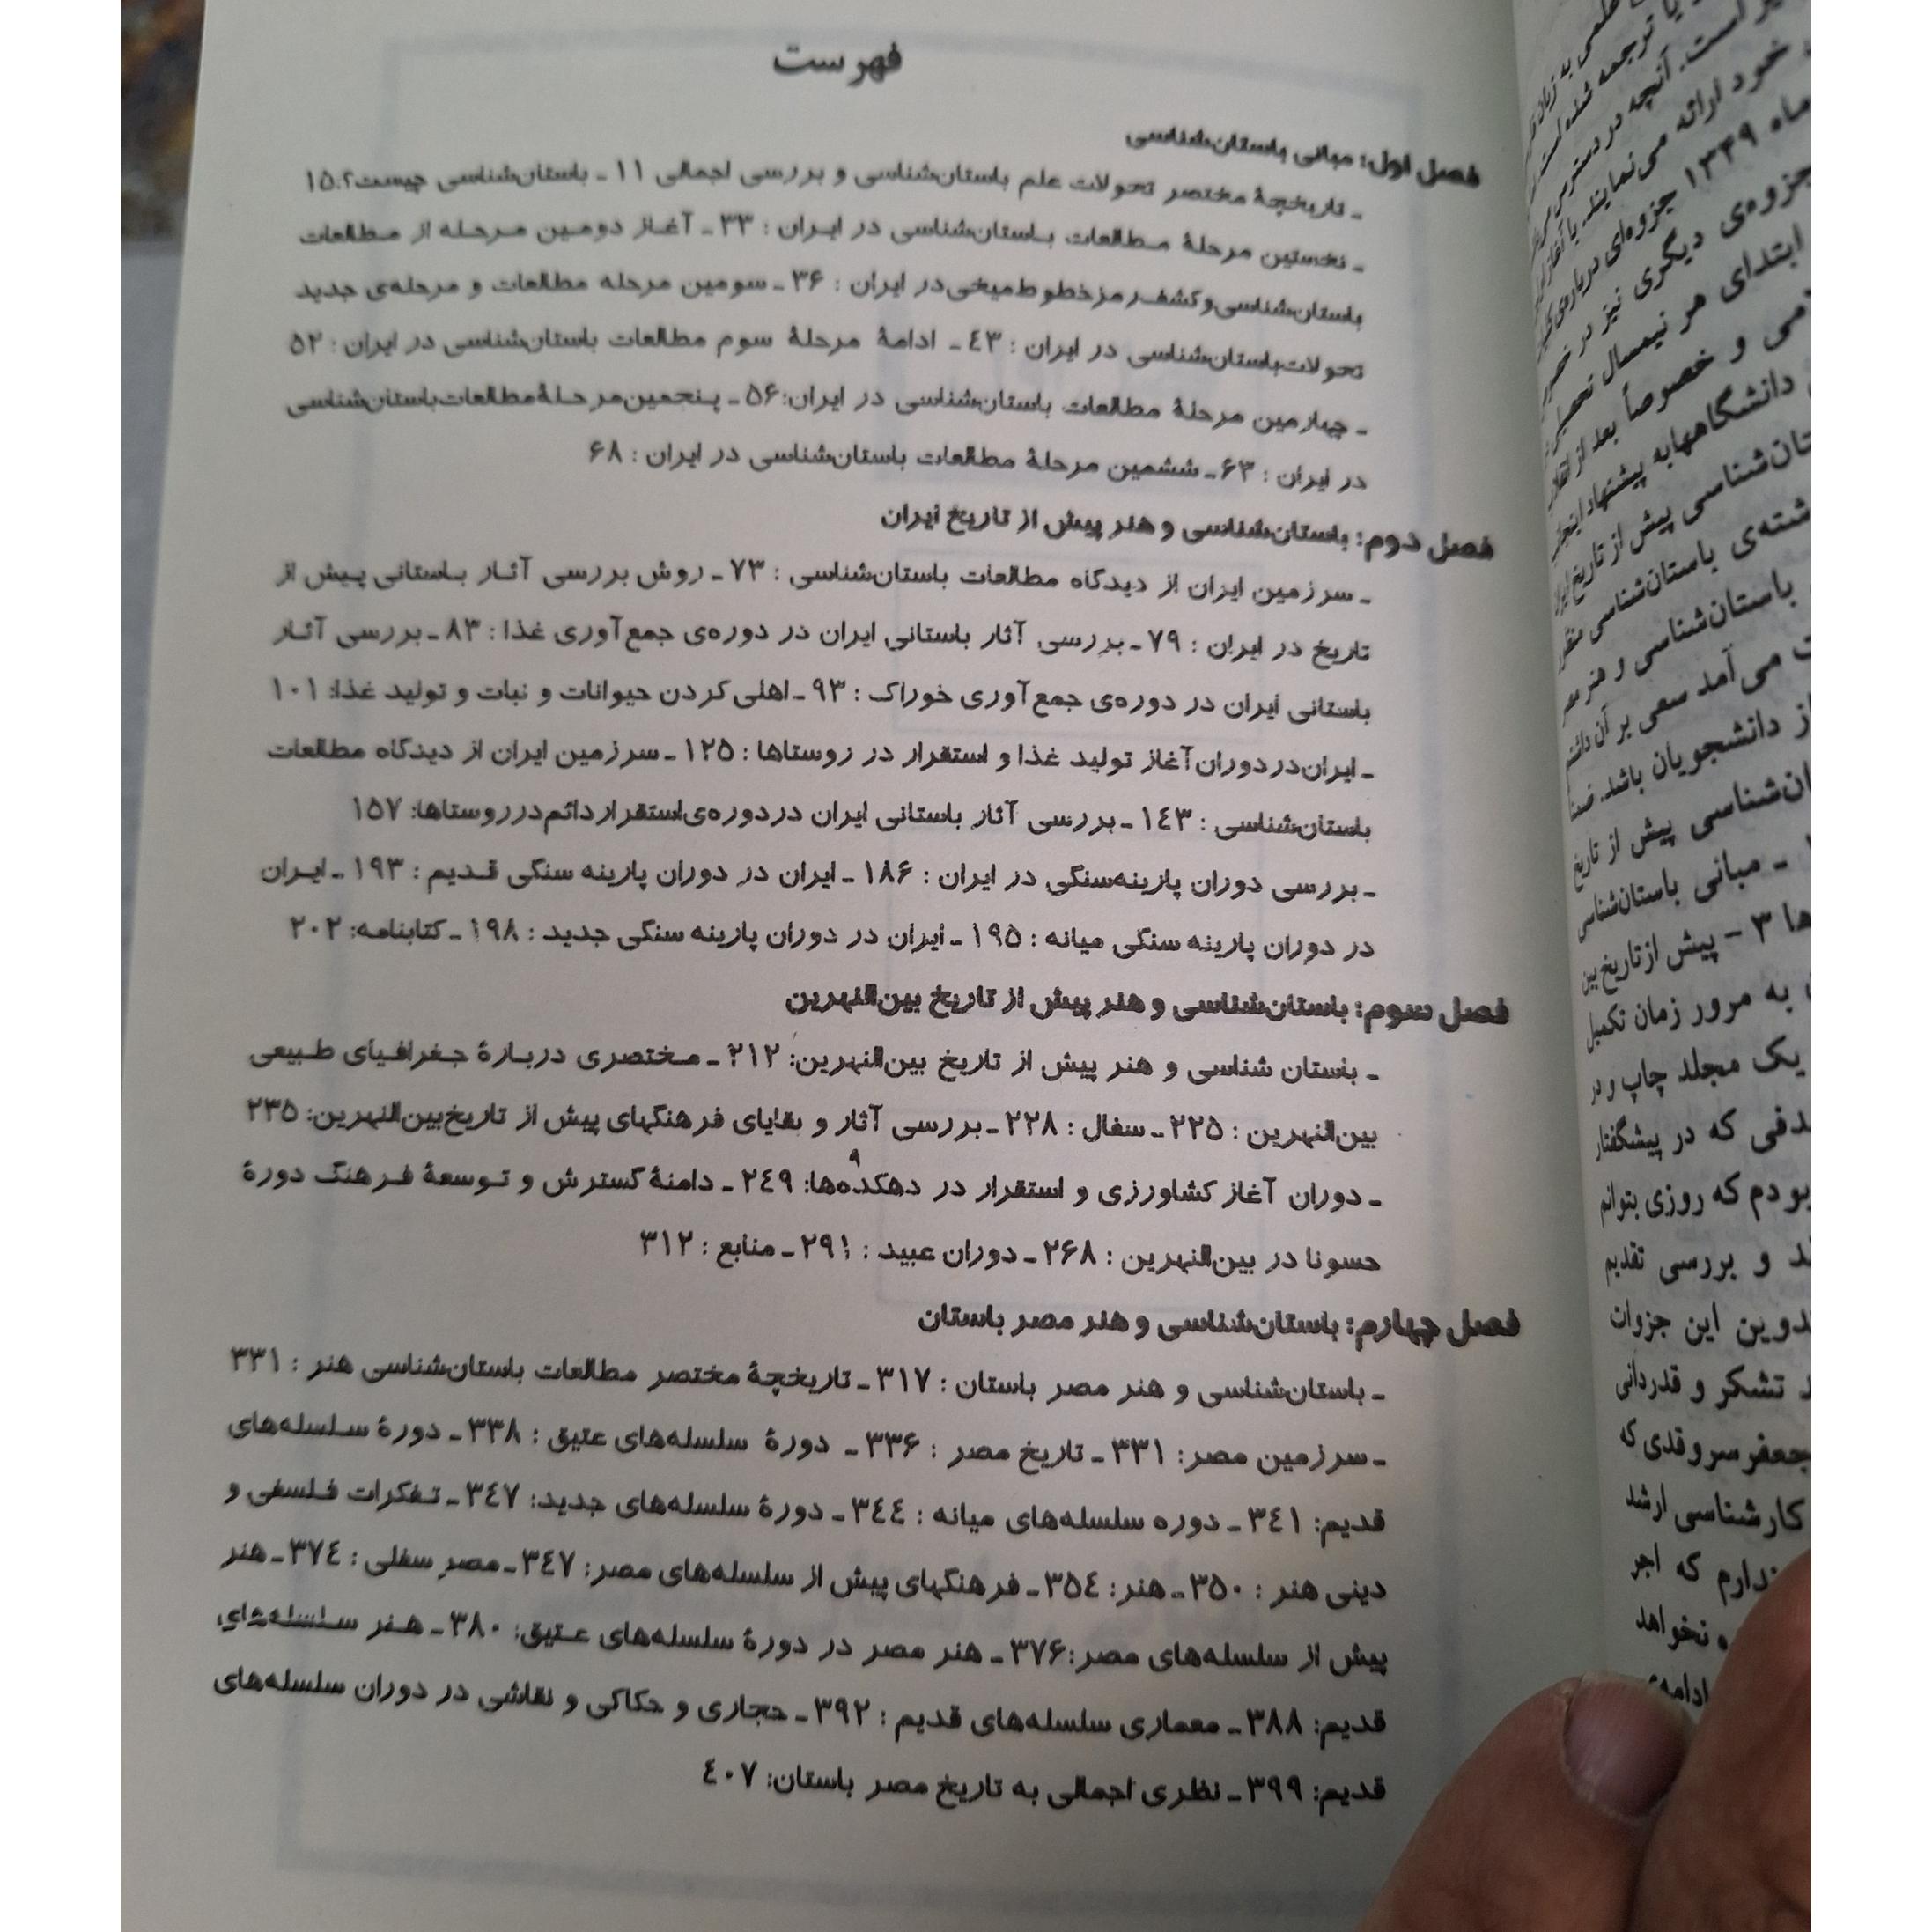 فهرست
فصل اول: مبانی باستان‌شناسی
ـ تاریخچهٔ مختصر تحولات علم باستان‌شناسی و بررسی اجمالی ۱۱ ـ باستان‌شناسی چیست؟.۱۵
ـ نخستین مرحلهٔ مطالعات باستان‌شناسی در ایران : ۳۳ ـ آغاز دومین مرحله از مطالعات
باستان‌شناسی و کشف رمز خطوط میخی در ایران : ۳۶ ـ سومین مرحله مطالعات و مرحله‌ی جدید
تحولات باستان‌شناسی در ایران : ۴۳ ـ ادامهٔ مرحلهٔ سوم مطالعات باستان‌شناسی در ایران : ۵۲
ـ چهارمین مرحلهٔ مطالعات باستان‌شناسی در ایران: ۵۶ ـ پنجمین مرحلهٔ مطالعات باستان‌شناسی
در ایران : ۶۳ ـ ششمین مرحلهٔ مطالعات باستان‌شناسی در ایران : ۶۸
فصل دوم: باستان‌شناسی و هنر پیش از تاریخ ایران
ـ سرزمین ایران از دیدگاه مطالعات باستان‌شناسی : ۷۳ ـ روش بررسی آثار باستانی پیش از
تاریخ در ایران : ۷۹ ـ بررسی آثار باستانی ایران در دوره‌ی جمع‌آوری غذا : ۸۳ ـ بررسی آثار
باستانی ایران در دوره‌ی جمع‌آوری خوراک : ۹۳ ـ اهلی کردن حیوانات و نبات و تولید غذا: ۱۰۱
ـ ایران در دوران آغاز تولید غذا و استقرار در روستاها : ۱۲۵ ـ سرزمین ایران از دیدگاه مطالعات
باستان‌شناسی : ۱۴۳ ـ بررسی آثار باستانی ایران در دوره‌ی استقرار دائم در روستاها: ۱۵۷
ـ بررسی دوران پارینه‌سنگی در ایران : ۱۸۶ ـ ایران در دوران پارینه سنگی قدیم : ۱۹۳ ـ ایران
در دوران پارینه سنگی میانه : ۱۹۵ ـ ایران در دوران پارینه سنگی جدید : ۱۹۸ ـ کتابنامه: ۲۰۲
فصل سوم: باستان‌شناسی و هنر پیش از تاریخ بین‌النهرین
ـ باستان شناسی و هنر پیش از تاریخ بین‌النهرین: ۲۱۲ ـ مختصری دربارهٔ جغرافیای طبیعی
بین‌النهرین : ۲۲۵ ـ سفال : ۲۲۸ ـ بررسی آثار و بقایای فرهنگهای پیش از تاریخ بین‌النهرین: ۲۳۵
ـ دوران آغاز کشاورزی و استقرار در دهکده‌ها: ۲۴۹ ـ دامنهٔ گسترش و توسعهٔ فرهنگ دورهٔ
حسونا در بین‌النهرین : ۲۶۸ ـ دوران عبید : ۲۹۱ ـ منابع : ۳۱۲
فصل چهارم: باستان‌شناسی و هنر مصر باستان
ـ باستان‌شناسی و هنر مصر باستان : ۳۱۷ ـ تاریخچهٔ مختصر مطالعات باستان‌شناسی هنر : ۳۳۱
ـ سرزمین مصر: ۳۳۱ ـ تاریخ مصر : ۳۳۶ ـ دورهٔ سلسله‌های عتیق : ۳۳۸ ـ دورهٔ سلسله‌های
قدیم: ۳۴۱ ـ دوره سلسله‌های میانه : ۳۴۴ ـ دورهٔ سلسله‌های جدید: ۳۴۷ ـ تفکرات فلسفی و
دینی هنر : ۳۵۰ ـ هنر: ۳۵۴ ـ فرهنگهای پیش از سلسله‌های مصر: ۳۴۷ ـ مصر سفلی : ۳۷۴ ـ هنر
پیش از سلسله‌های مصر: ۳۷۶ ـ هنر مصر در دورهٔ سلسله‌های عتیق: ۳۸۰ ـ هنر سلسله‌های
قدیم: ۳۸۸ ـ معماری سلسله‌های قدیم : ۳۹۲ ـ حجاری و حکاکی و نقاشی در دوران سلسله‌های
قدیم: ۳۹۹ ـ نظری اجمالی به تاریخ مصر باستان: ۴۰۷
۹
ترجمه شده است
است. آنچه در دسترس
خود ارائه می‌نمایند. با
ماه ۱۳۴۹ جزوه‌ای درباره‌ی
جزوه‌ی دیگری نیز در
ابتدای هر نیمسال
و خصوصاً بعد از
دانشگاهها به پیشنهاد
پیش از تاریخ
باستان‌شناسی
باستان‌شناسی و هنر
می‌آمد سعی بر آن
از دانشجویان باشد. ضمناً
پیش از تاریخ
ـ مبانی باستان‌شناسی
۳ – پیش از تاریخ بین
به مرور زمان تکمیل
یک مجلد چاپ و در
که در پیشگفتار
بودم که روزی بتوانم
و بررسی تقدیم
تدوین این جزوات
تشکر و قدردانی
جعفر سروقدی که
کارشناسی ارشد
ندارم که اجر
نخواهد